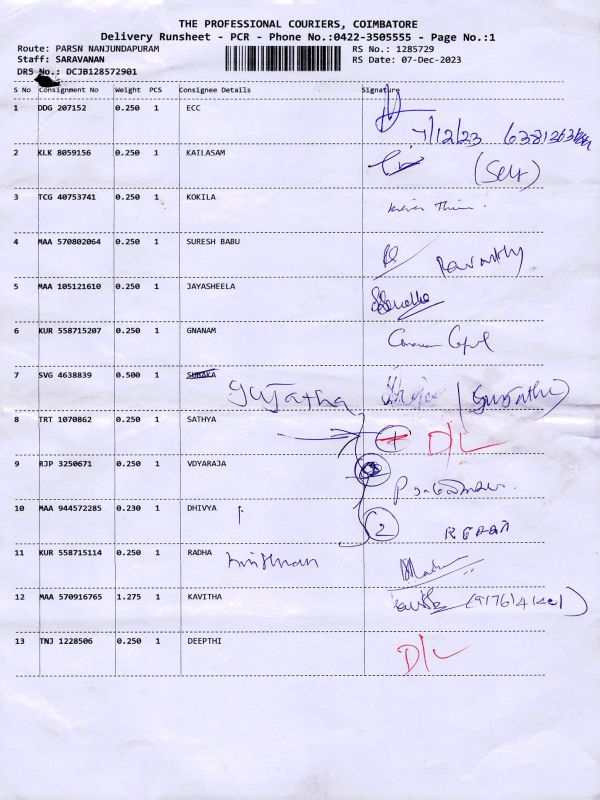 THE PROFESSIONAL COURIERS, COIMBATORE
Delivery Runsheet - PCR - Phone No.:0422-3505555 - Page No.:1
Route: PARSN NANJUNDAPURAM RS No.: 1285729
Staff: SARAVANAN RS Date: 07-Dec-2023
DRS No.: DCJB128572901
S No Consignment No Weight PCS Consignee Details Signature
1 DDG 207152 0.250 1 ECC
7/12/23
2 KLK 8059156 0.250 1 KAILASAM (Self)
3 TCG 40753741 0.250 1 KOKILA
4 MAA 570802064 0.250 1 SURESH BABU
5 MAA 105121610 0.250 1 JAYASHEELA
6 KUR 558715207 0.250 1 GNANAM
7 SVG 4638839 0.500 1 SUBAKA
8 TRT 1070862 0.250 1 SATHYA 1 D/L
9 RJP 3250671 0.250 1 VDYARAJA
10 MAA 944572285 0.230 1 DHIVYA 2
11 KUR 558715114 0.250 1 RADHA
12 MAA 570916765 1.275 1 KAVITHA
13 TNJ 1228506 0.250 1 DEEPTHI D/L